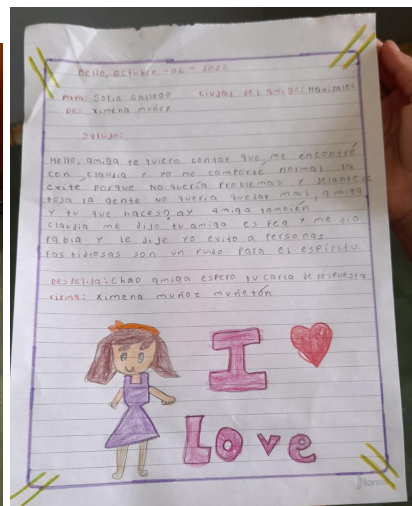 Bello, octubre -06 - 2022
Para: Sofia Gallego Ciudad del amigo: Manizales
De: Ximena muñoz
Saludo:
Hello, amiga te quiero contar que me encontré
con claudia y yo me comporté normal la
evite porque no quería problemas y delante de
toda la gente no quería quedar mal, amiga
y tu que haces? ay amiga también
claudia me dijo tu amiga es fea y me dio
rabia y le dije yo evito a personas
fastidiosas son un ruido para el espíritu.
Despedida: chao amiga espero tu carta de respuesta
Firma: Ximena muñoz muñetón
I
Love
Norma